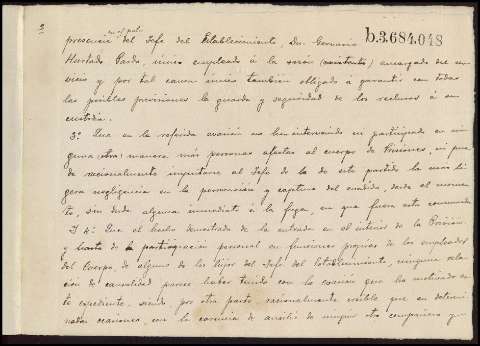 2
en el patio
presencia del Jefe del Establecimiento, Dn. Genaro
b.3.684.048
Hurtado Pardo, único empleado á la sazón (existente) encargado del servicio
y por tal causa único también obligado á garantir con todas
las posibles previsiones la guarda y seguridad de los reclusos á su
custodia.
3º Que en la referida evasión no han intervenido ni participado en ninguna
(otra) manera más personas afectas al cuerpo de Prisiones, ni puede
racionalmente imputarse al Jefe de la de este partido la más ligera
negligencia en la persecución y captura del evadido, desde el momento,
sin duda alguna inmediato á la fuga, en que fuera esta conocida
Y 4º: Que el hecho demostrado de la entrada en el interior de la Prisión
y hasta de la participación personal en funciones propias de los empleados
del Cuerpo, de alguno de los hijos del Jefe del Establecimiento, ninguna relación
de causalidad parece haber tenido con la evasión que ha motivado este
expediente, siendo por otra parte racionalmente creíble que en determinadas
ocasiones, con la carencia de auxilio de ningún otro compañero y